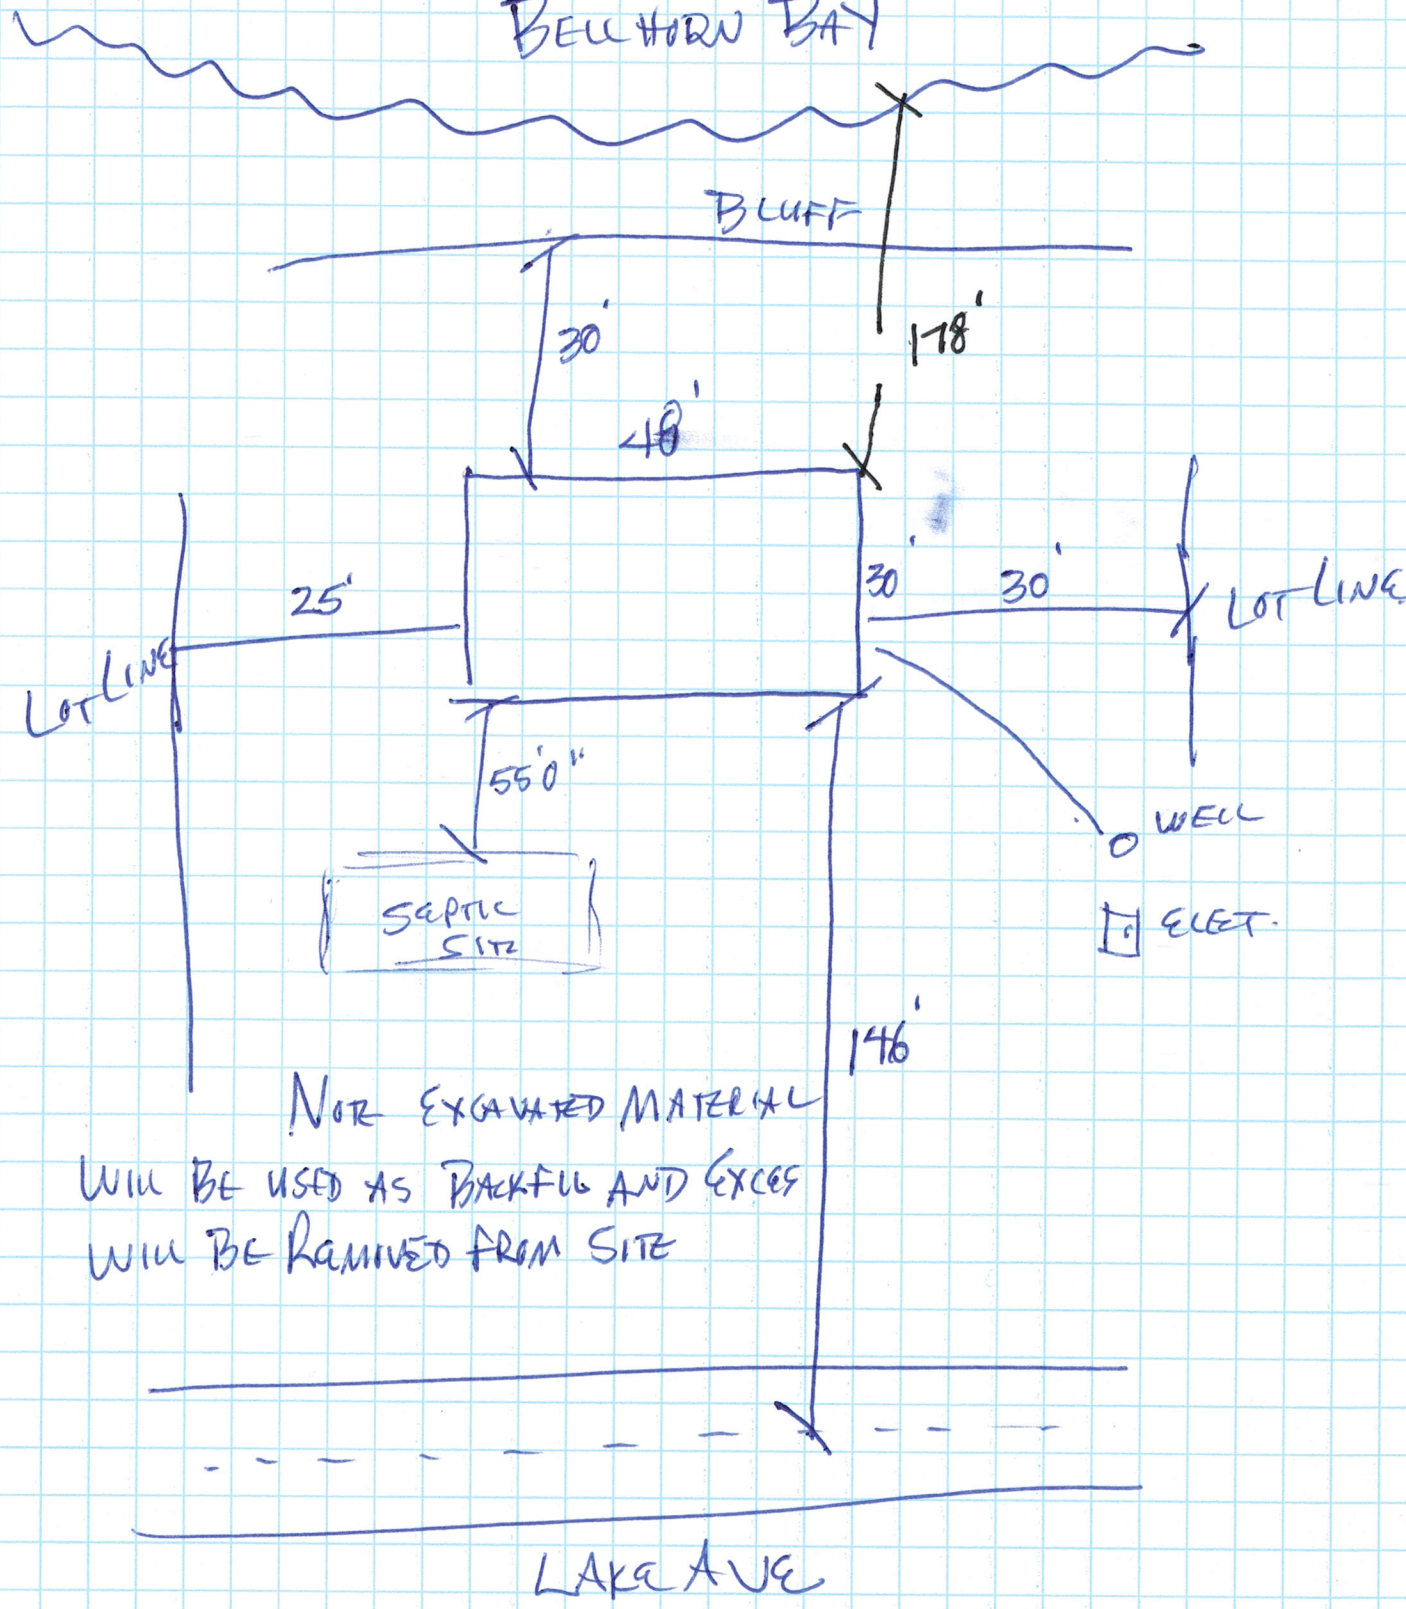 BELLHORN BAY
BLUFF
178'
30'
48'
25'
30'
30'
LOT LINE
LOT LINE
55'0"
WELL
SEPTIC
SITE
ELET.
146'
NOTE EXCAVATED MATERIAL
WILL BE USED AS BACKFILL AND EXCES
WILL BE REMOVED FROM SITE
LAKE AVE